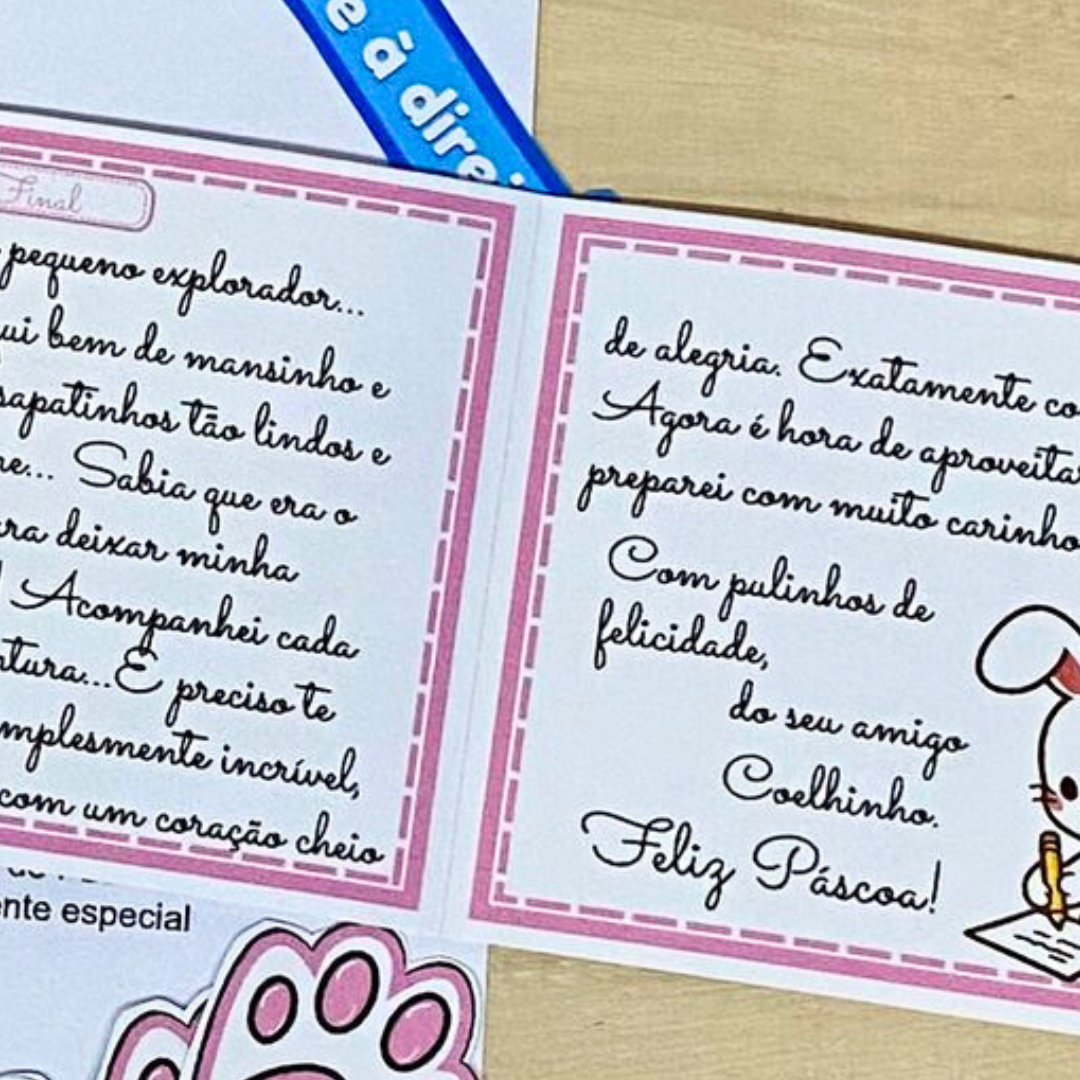 e à direi
Final
pequeno explorador...
ui bem de mansinho e
sapatinhos tão lindos e
e... Sabia que era o
ra deixar minha
! Acompanhei cada
ntura...E preciso te
mplesmente incrível,
com um coração cheio
de alegria. Exatamente co
Agora é hora de aproveitar
preparei com muito carinho
Com pulinhos de
felicidade,
do seu amigo
Coelhinho.
Feliz Páscoa!
ente especial